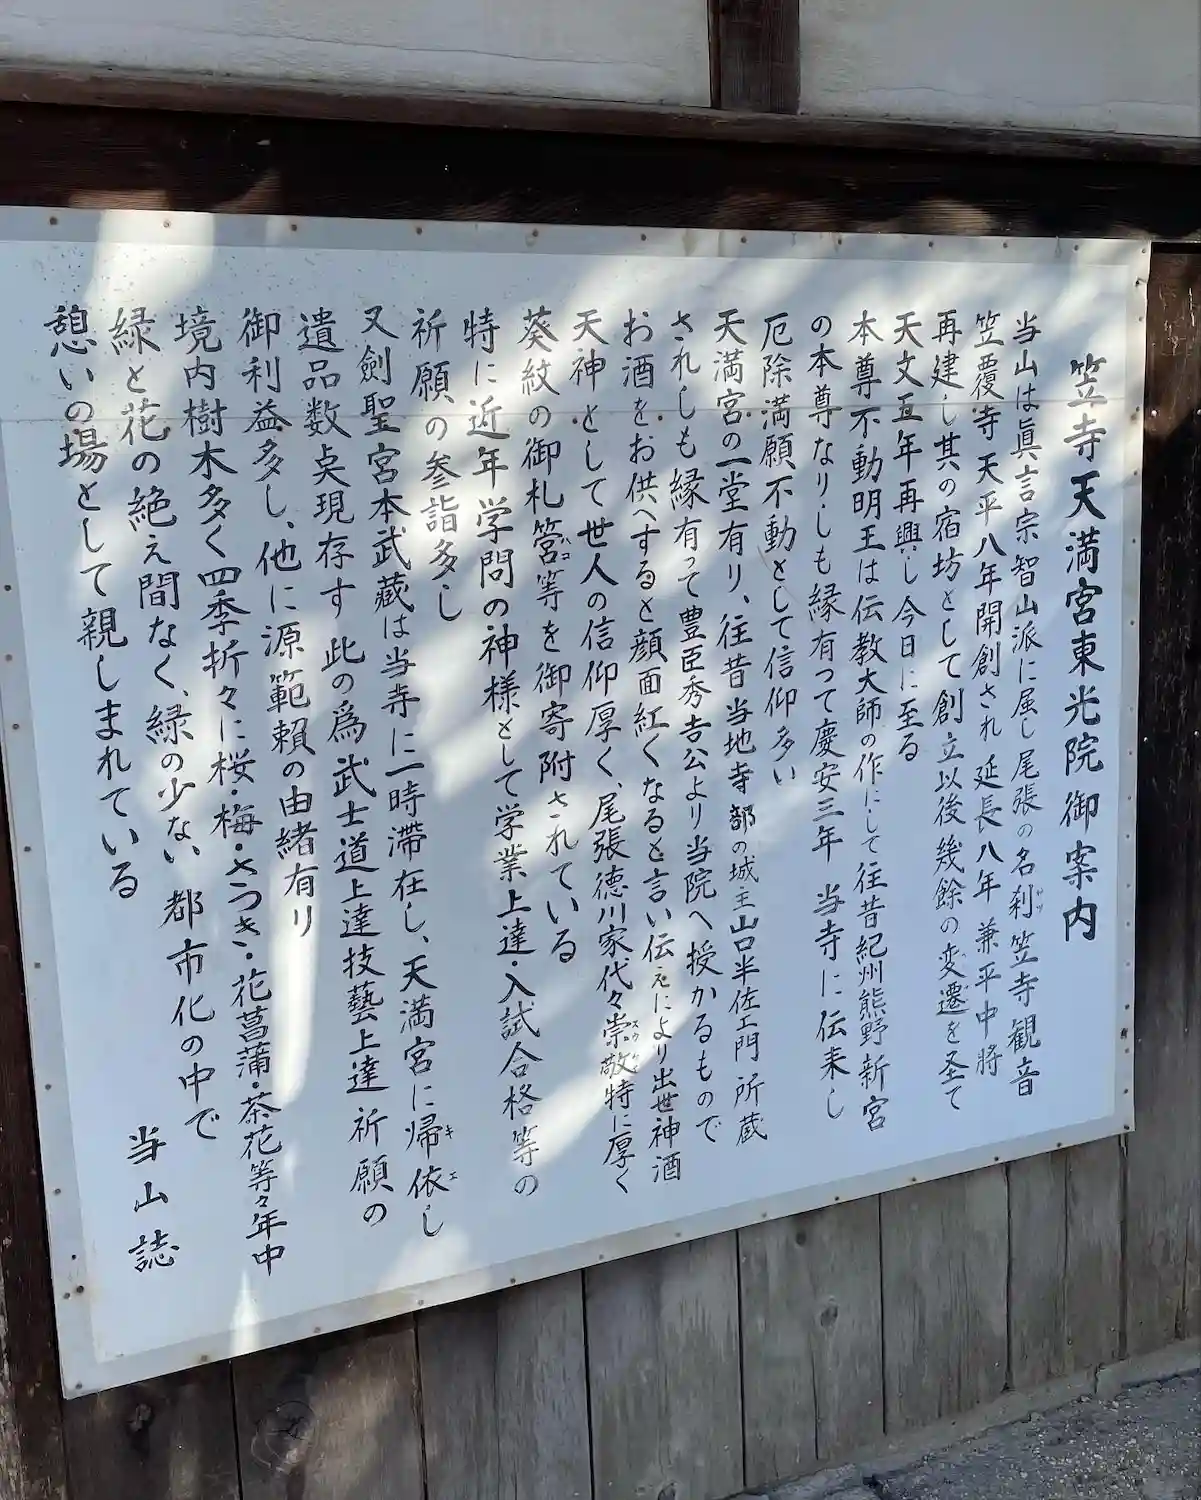 笠寺天満宮東光院御案内
当山は眞言宗智山派に属し尾張の名刹笠寺観音
笠覆寺天平八年開創され延長八年兼平中將
再建し其の宿坊として創立以後幾餘の変遷を圣て
天文五年再興し今日に至る
本尊不動明王は伝教大師の作にして往昔紀州熊野新宮
の本尊なりしも縁有って慶安三年当寺に伝来し
厄除満願不動として信仰多い
天満宮の一堂有り、往昔当地寺部の城主山口半佐エ門所蔵
されしも縁有って豊臣秀吉公より当院へ授かるもので
お酒をお供へすると顔面紅くなると言い伝えにより出世神酒
天神として世人の信仰厚く、尾張徳川家代々崇敬特に厚く
葵紋の御札筥等を御寄附されている
特に近年学問の神様として学業上達・入試合格等の
祈願の参詣多し
又劍聖宮本武蔵は当寺に一時滞在し、天満宮に帰依し
遺品数点現存す此の為武士道上達技藝上達祈願の
御利益多し、他に源範頼の由緒有り
境内樹木多く四季折々に桜・梅・さつき・花菖蒲・茶花等々年中
緑と花の絶え間なく、緑の少ない都市化の中で
憩いの場として親しまれている
当山誌